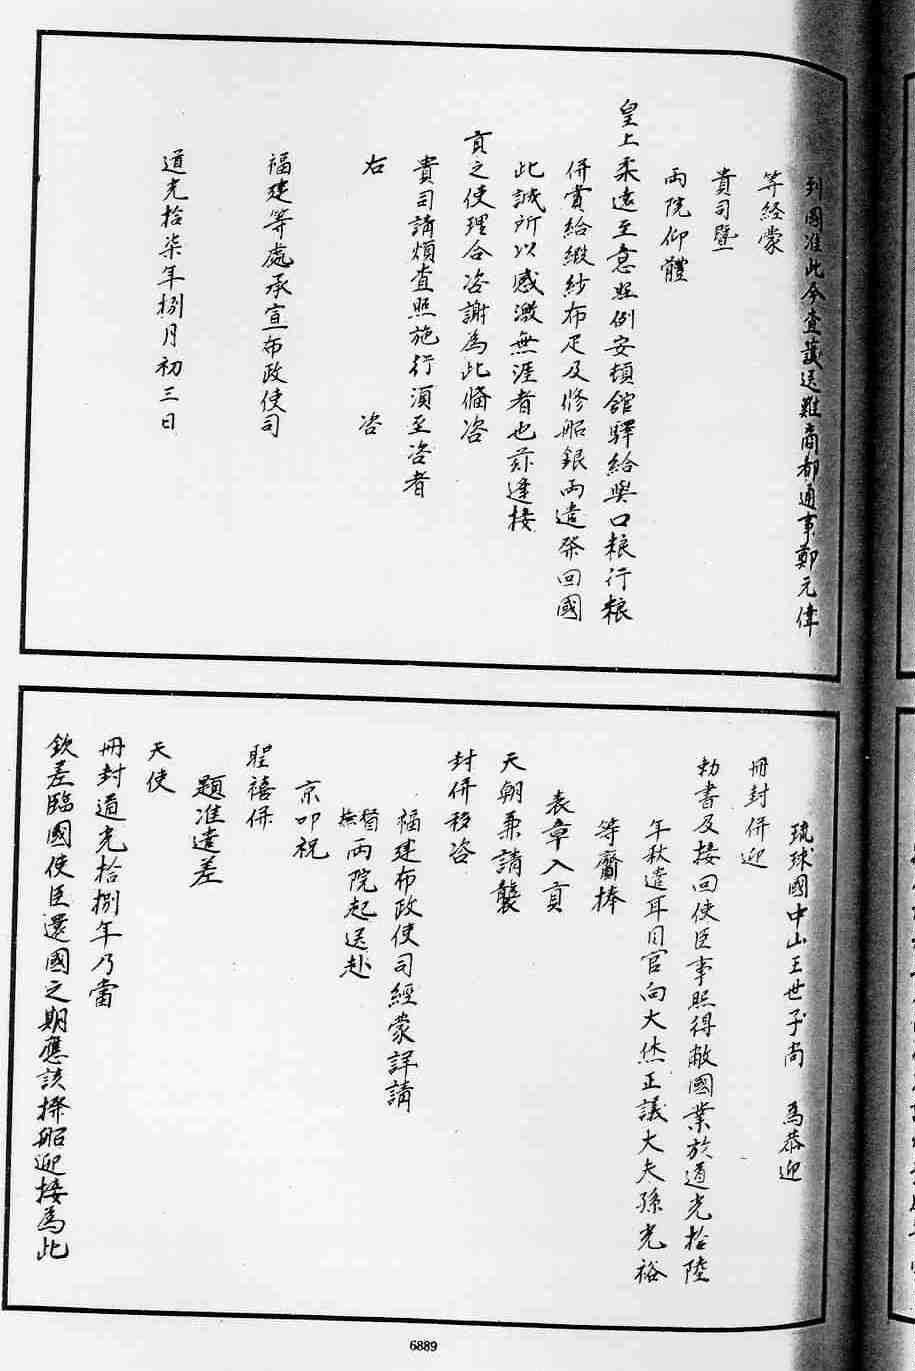 到國准此今查護送難商都通事鄭元偉
等經蒙
貴司暨
兩院仰體
皇上柔遠至意照例安頓館驛給與口粮行粮
併賞給緞紗布疋及修船銀兩遣發回國
此誠所以感激無涯者也茲逢接
貢之使理合咨謝為此備咨
貴司請煩查照施行須至咨者
右 咨
福建等處承宣布政使司
道光拾柒年捌月初三日
琉球國中山王世子尚 為恭迎
冊封併迎
勅書及接回使臣事照得敝國業於道光拾陸
年秋遣耳目官向大烋正議大夫孫光裕
等齎捧
表章入貢
天朝兼請襲
封併移咨
福建布政使司經蒙詳請
督撫兩院起送赴
京叩祝
聖禧併
題准遣差
天使
冊封道光拾捌年乃當
欽差臨國使臣還國之期應該撥船迎接為此
6889